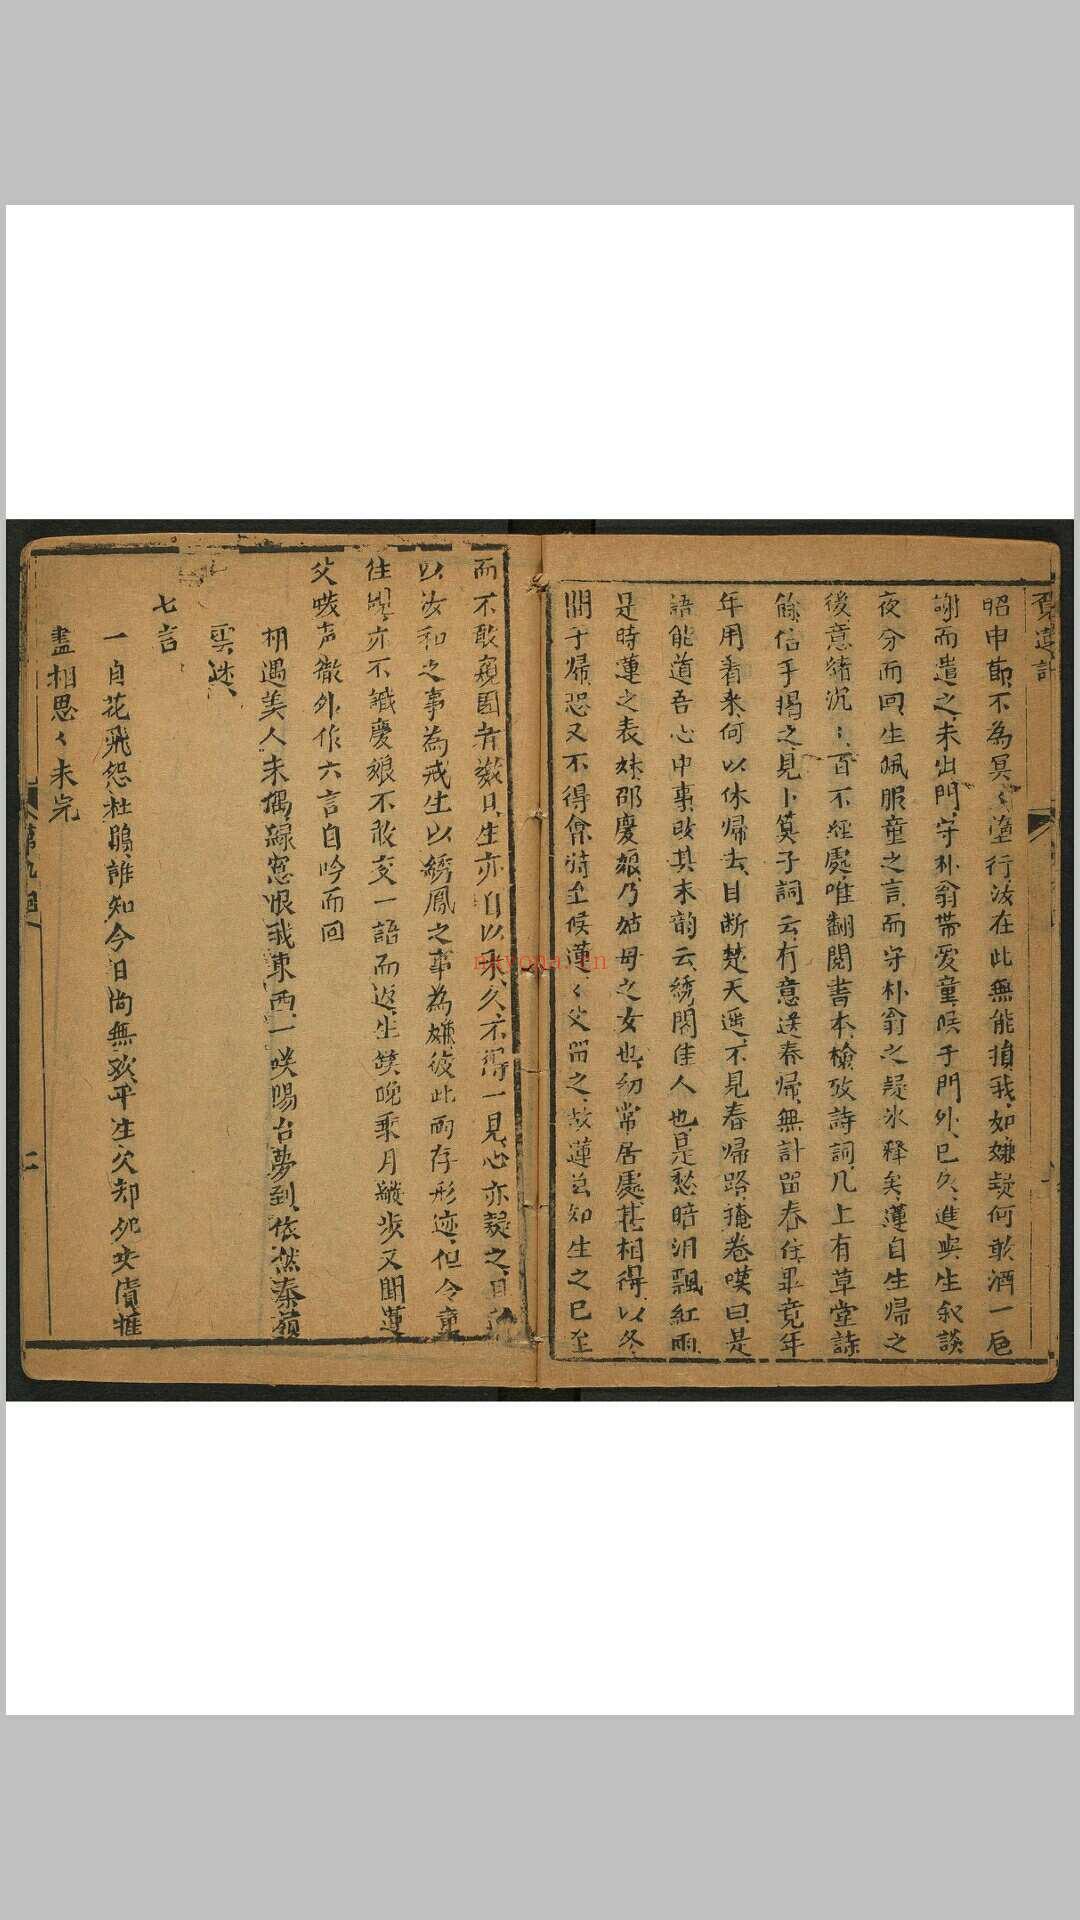 昭申節、不為冥〻墮行、汝在此無能損我、如嫌疑何敢洒一巵
謝而遣之、未出門、守朴翁帶愛童、候于門外、已久、進與生叙談
夜分而回、生佩服童之言、而守朴翁之疑氷釋矣、蓮自生歸之
後、意緒沉〻、百不經處、唯翻閱書本、檢攷詩詞、几上有草堂詩
餘、信手揭之、見卜筭子詞云、有意送春歸、無計畱春住、畢竟年
年用着来、何以休歸去、目断楚天遥、不見春歸路、掩卷嘆曰、是
語能道吾心中事、改其末韵云、綉閣佳人也是愁、暗泪飄紅雨、
是時蓮之表妹邵慶娘、乃姑母之女也、幼常居處、甚相得、以冬
間于歸、恐又不得常
候蓮〻父畱之、故蓮
知生之已至
而不敢窺園者
日、生亦自以
久、不得一見、心亦疑之、且
以汝和之事為戒、生以綉鳳之事為嫌、彼此兩存形迹、但令童
往
亦不識慶娘、不敢交一語而返、生
晩乘月
步、又聞蓮
父咳声徹外、作六言自吟而回
栩遇美人未偶、緑窓恨我東西、一咲陽台夢到、依然秦嶺
雲迷、
七言
一自花飛怨杜鵑、誰知今日尚無欢、平生欠却
債、推
盡相思〻未完
第九回